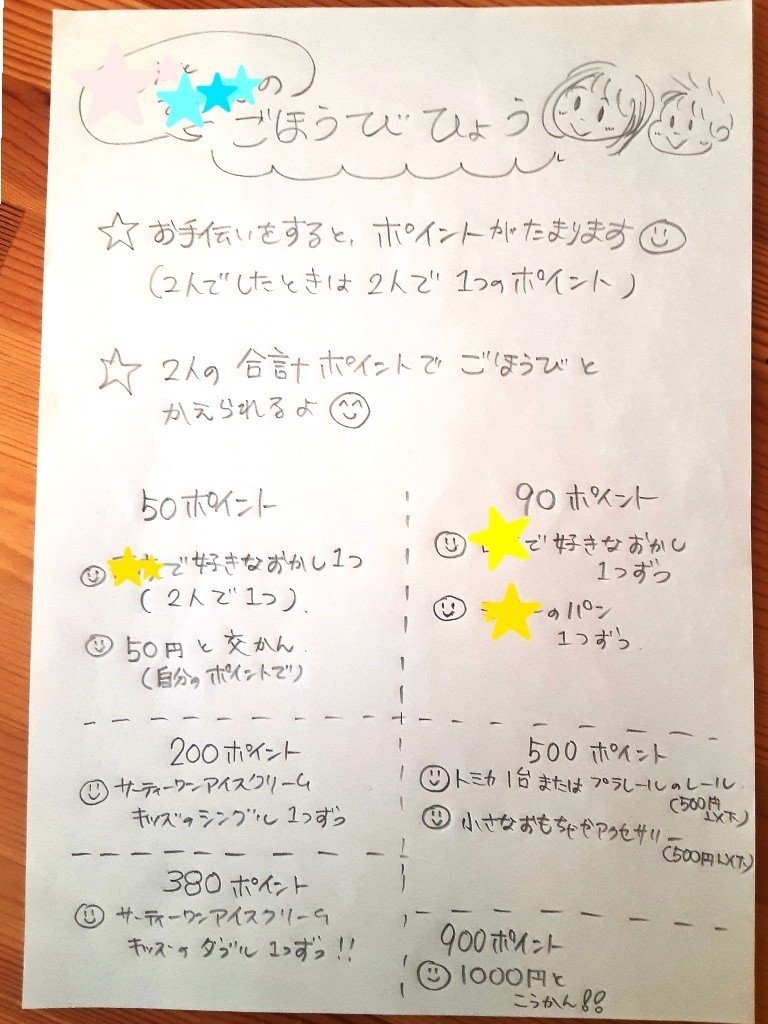 の
ごほうびひょう
☆ お手伝いをすると、ポイントがたまります
(2人でしたときは 2人で 1つのポイント)
☆ 2人の 合計ポイントで ごほうびと
かえられるよ
50ポイント
で好きなおかし1つ
(2人で1つ).
50円と交かん.
(自分のポイントで)
90ポイント
で好きなおかし
1つずつ
のパン
1つずつ.
200ポイント
サーティーワンアイスクリーム
キッズのシングル 1つずつ
380ポイント
サーティーワンアイスクリーム
キッズのダブル 1つずつ!!
500ポイント
トミカ1台またはプラレールのレール.
(500円以下)
小さなおもちゃかアクセサリー
(500円以下)
900ポイント
1000円と
こうかん!!